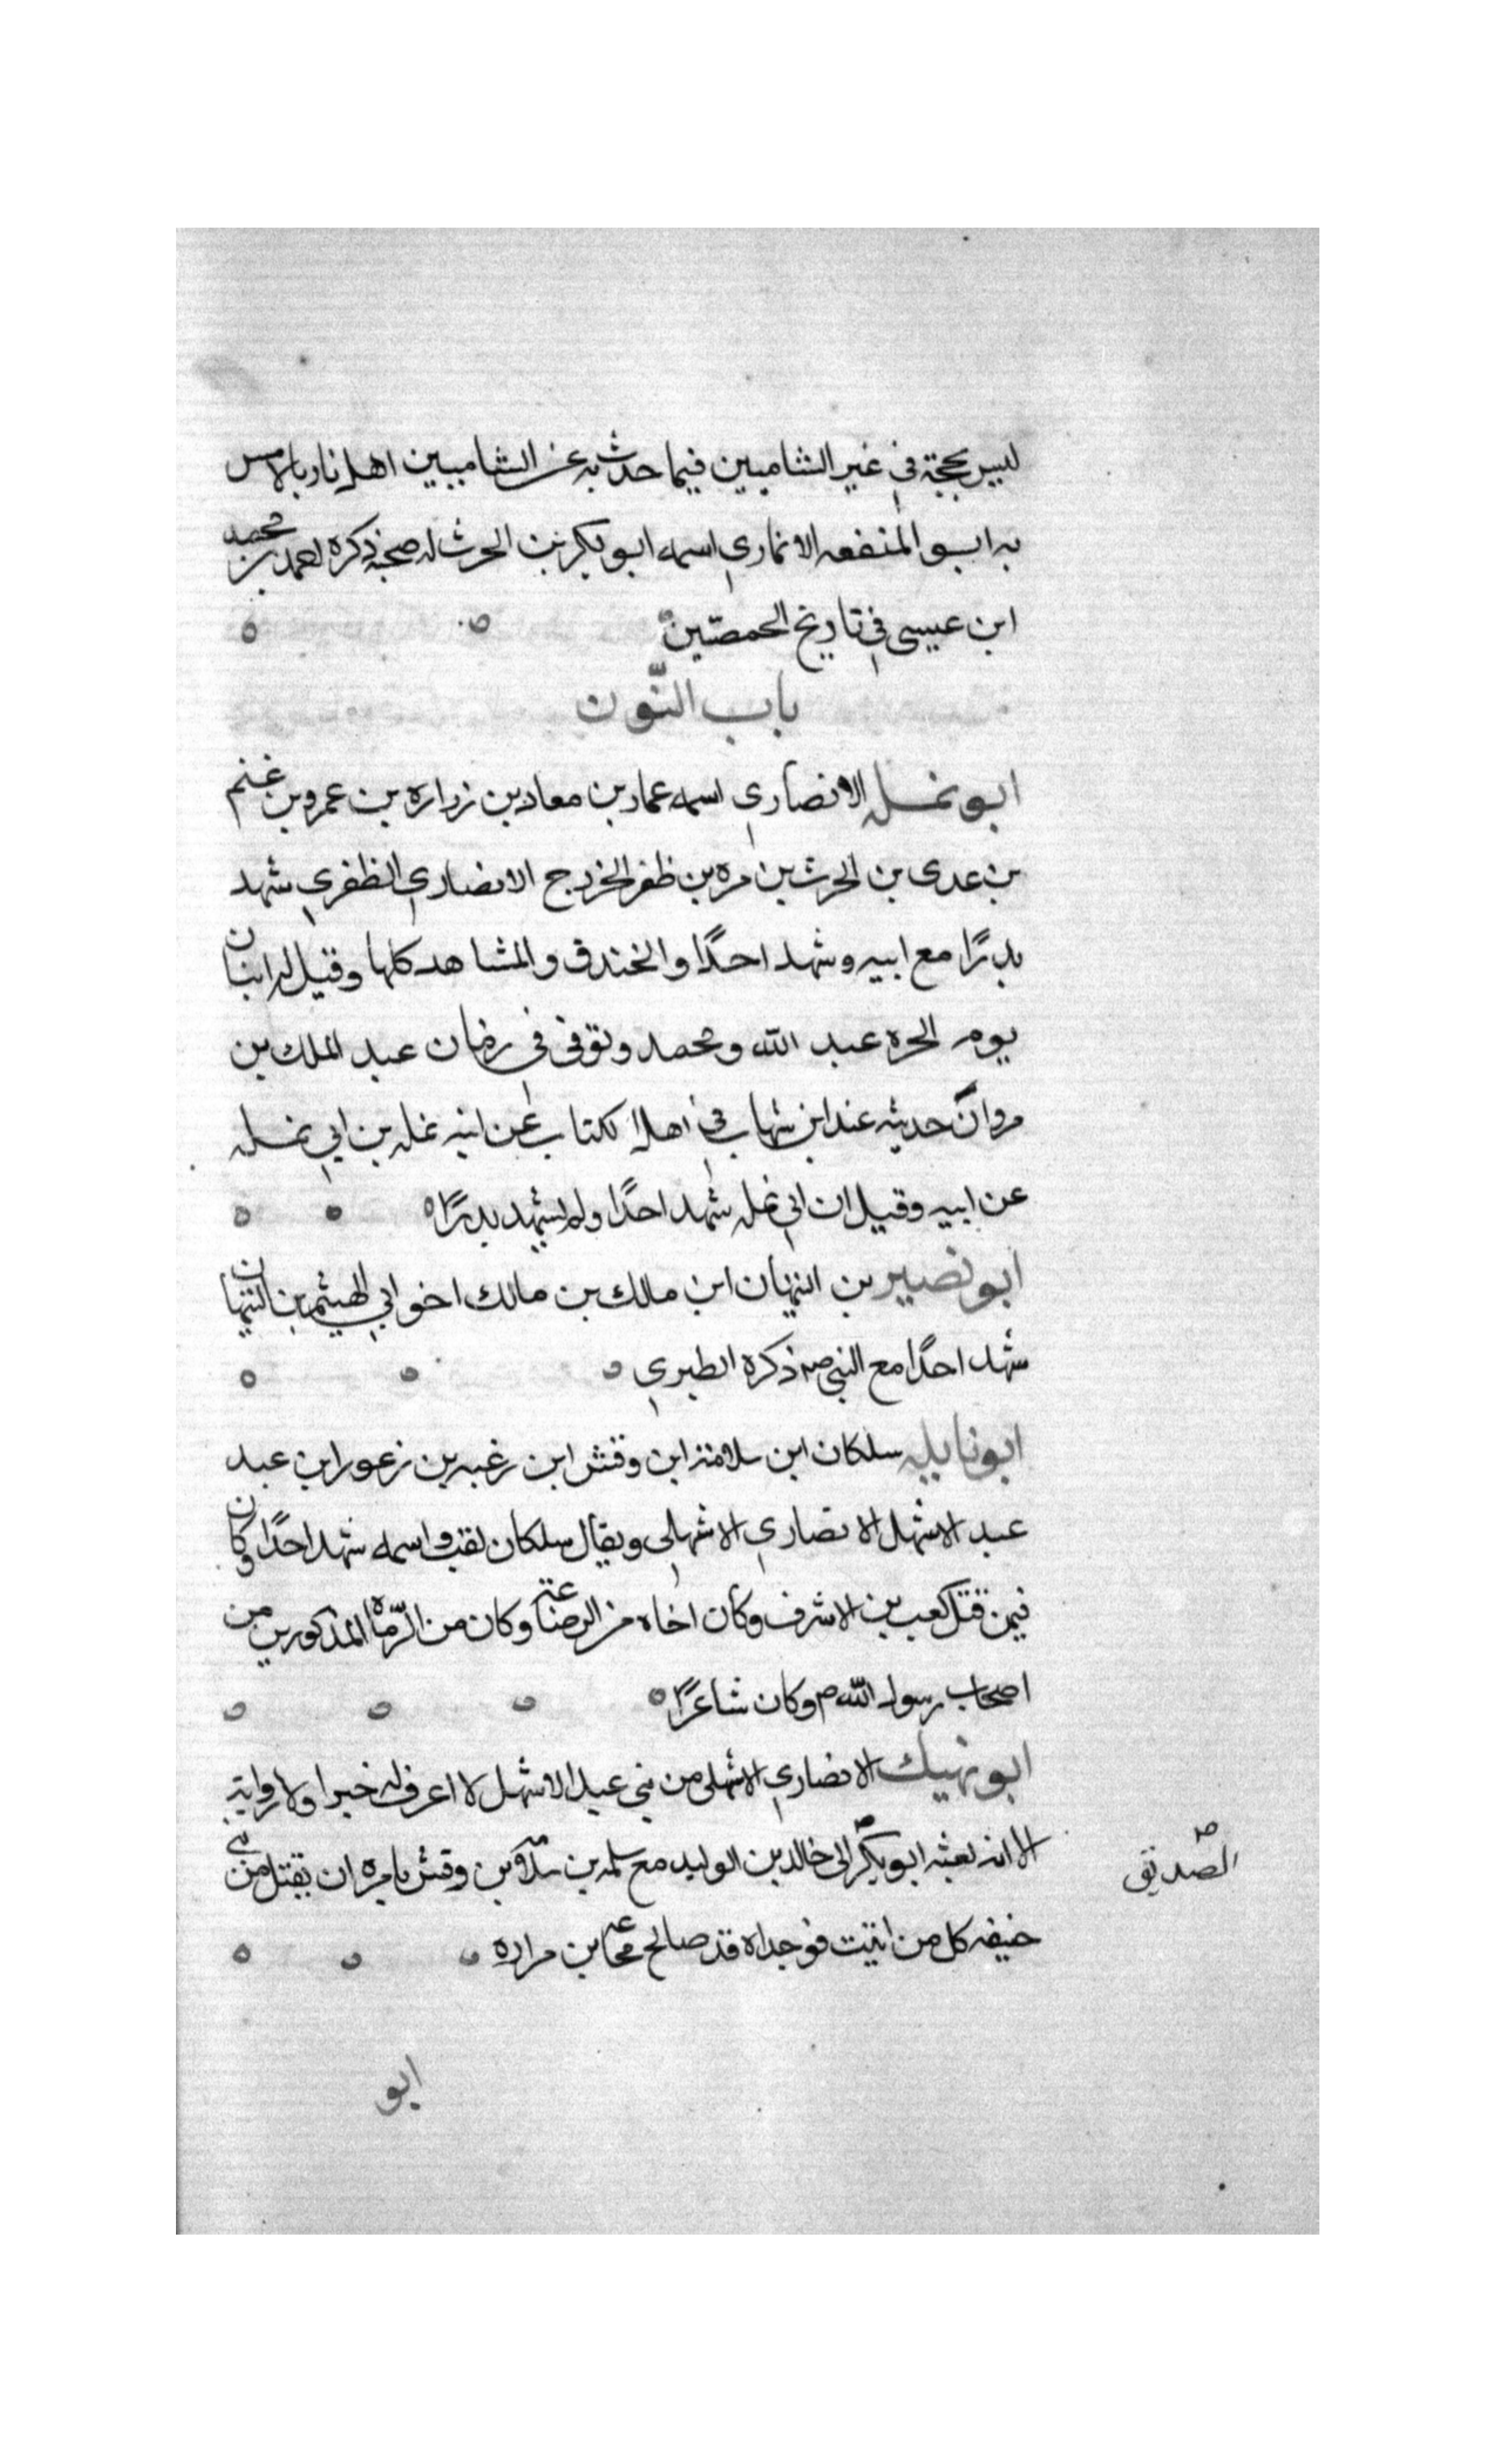 ليس بحجة في غير الشاميين فيما حدث به عن الشاميين اهلنا وبالامس
به ابو المنفعه الانماري اسمه ابو بكر بن الحرث له صحبة ذكره احمد بن محمد
ابن عيسى في تاريخ الحمصّين
باب النّون
ابو نمله الانصاري اسمه عمار بن معاد بن زراره بن عمرو بن غنم
بن عدى بن الحرث بن مره بن ظفر الخزرج الانصاري الظفري شهد
بدرًا مع ابيه وشهد احدًا والخندق والمشاهد كلها وقتيل له ابنان
يوم الحره عبد الله ومحمد وتوفى في زمان عبد الملك بن
مروان حديثه عند ابن شهاب في اهل الكتاب عن ابنه نمله بن ابي نمله
عن ابيه وقيل ان ابي نمله شهد احدًا ولم يشهد بدرًا
ابو نصير بن التيهان ابن مالك بن مالك اخو ابي الهيثم بن التيهان
شهد احدًا مع النبي صه ذكره الطبري
ابو نايله سلكان ابن سلامة ابن وقش ابن زغبه بن زعورا بن عبد
عبد الاشهل الانصاري الاشهلى ويقال سلكان لقب واسمه شهد احدًا وكان
فيمن قتل كعب بن الاشرف وكان اخاه من الرضاعته وكان من الرّماه المذكورين من
اصحاب رسول الله ص وكان شاعرًا
ابو نهيك الانصاري الاشهلى من بني عبد الاشهل لا اعرف له خبرا ولا رواية
الا انه بعثه ابو بكر الى خالد بن الوليد مع سلمه بن سلامه بن وقش يامره ان يقتل من بني
الصديق
حنيفه كل من انبتت فوجداه قد صالح مجاعه بن مراره
ابو